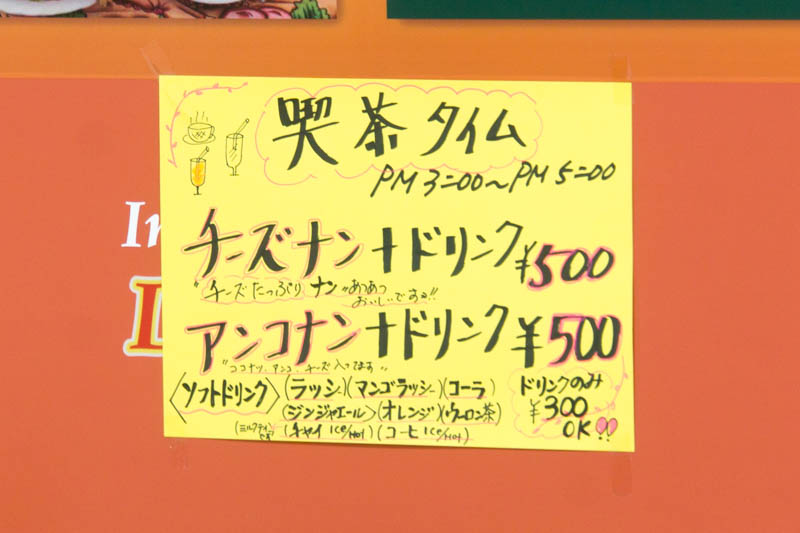 喫茶タイム
PM 3=00～PM 5=00
チーズナン+ドリンク ¥500
"チーズたっぷりナン"あつあつ
おいしいです!!
アンコナン+ドリンク ¥500
"ココナツ、アンコ、チーズ入ってます"
〈ソフトドリンク〉(ラッシー)(マンゴラッシー)(コーラ)
(ジンジャエール)(オレンジ)(ウーロン茶)
(ミルクティーです)(チャイ Ice/Hot)(コーヒ Ice/Hot)
ドリンクのみ
¥300
OK!!
In